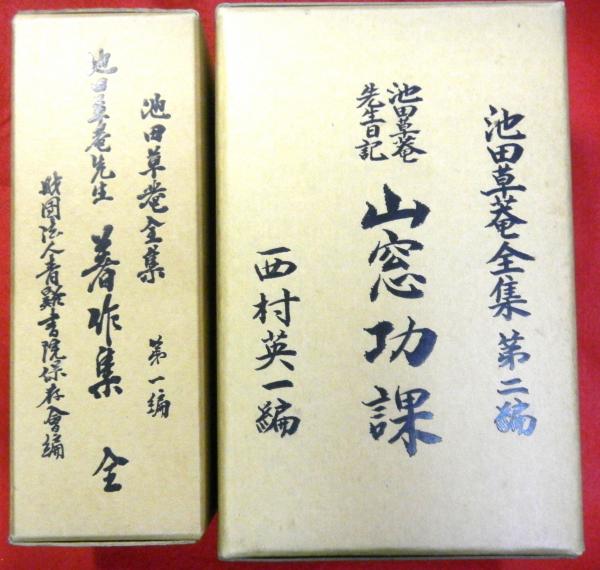 池田草菴全集 第一編
池田草菴先生 著作集 全
財団法人青谿書院保存會編
池田草菴全集 第二編
池田草菴
先生日記
山窓功課
西村英一編